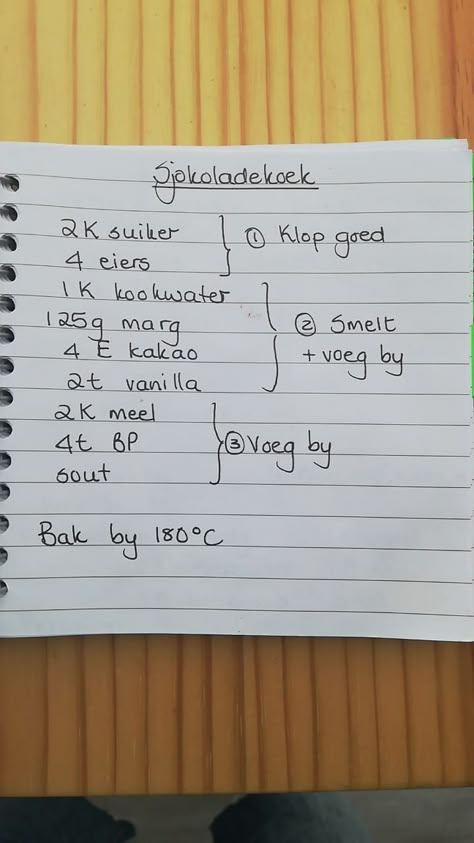 Sjokoladekoek
2K suiker
4 eiers
① Klop goed
1K kookwater
125g marg
4 E kakao
2t vanilla
② Smelt
+ voeg by
2K meel
4t BP
sout
③ Voeg by
Bak by 180°C